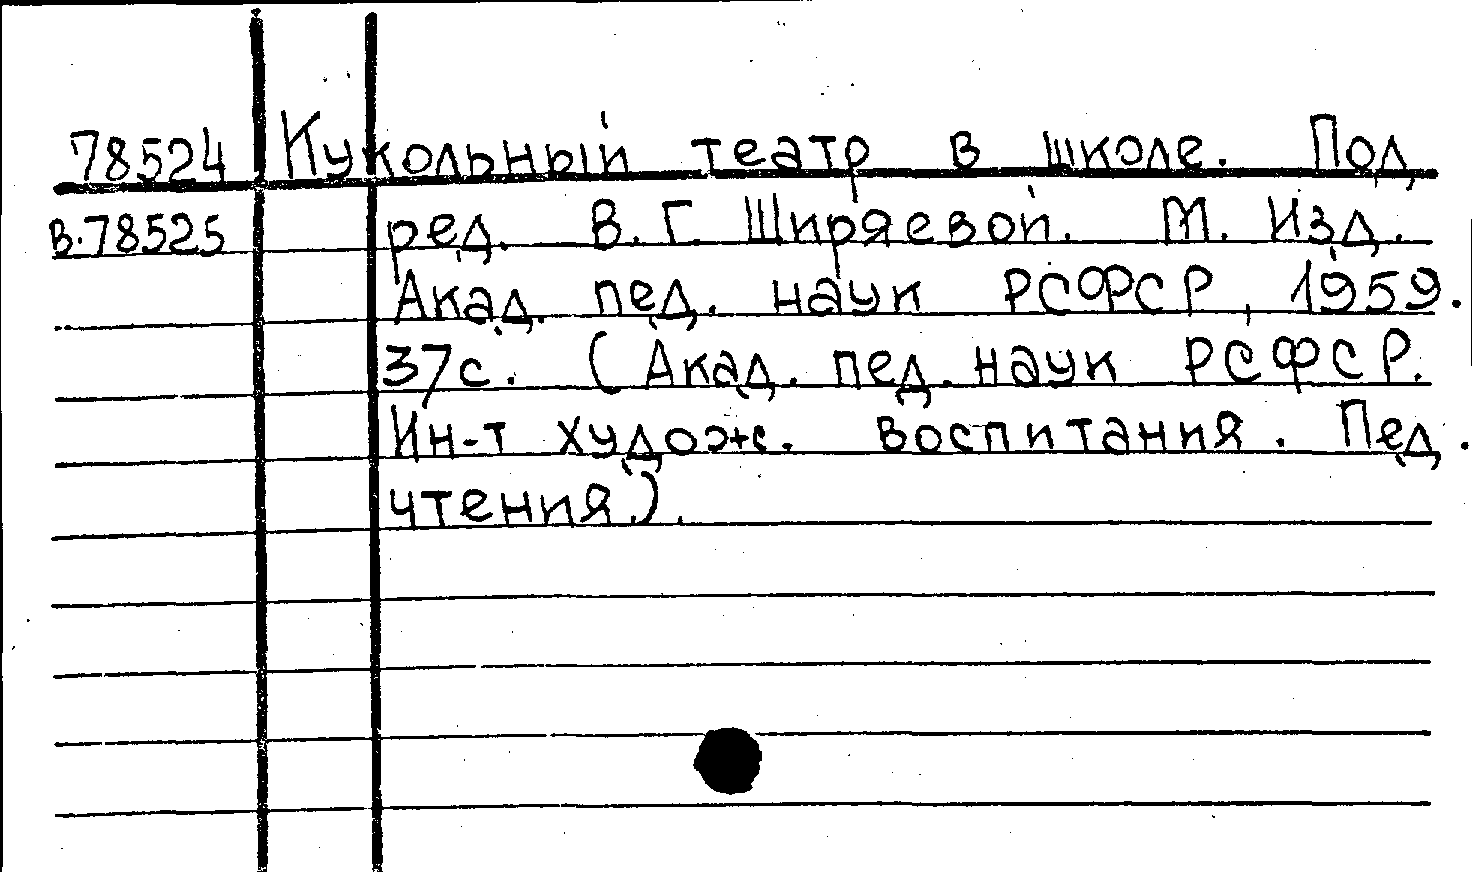 78524 Кукольный театр в школе. Под
в.78525 ред. В. Г. Ширяевой. М. Изд.
Акад. пед. наук РСФСР, 1959.
37с. (Акад. пед. наук РСФСР.
Ин-т худож. воспитания. Пед.
чтения.).